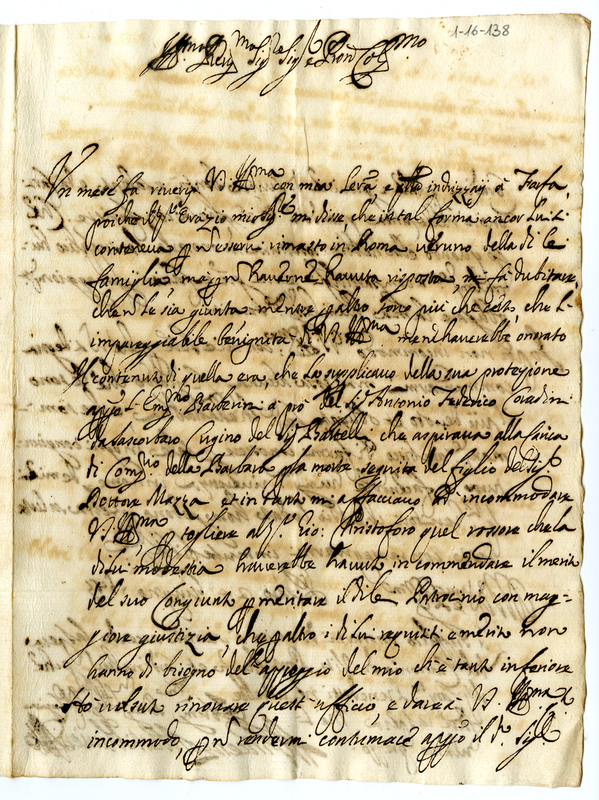 1-16-138
Ill.mo Rev.mo Sig.r Sig.r e Pron Col.mo
Un mese fà riverij V.S. Ill.ma con mia letra e indrizzaij à Farfa,
poiche il Orazio mio mi disse che in tal forma ancor lui si
conteneva p non essere rimasto in Roma veruno della di le
famiglia, ma p non haverne havuta risposta, mi fà dubitare,
che le sia giunta mentre p altro sono più che certo, che l'
impareggiabile benignità di V.S. Ill.ma me n'haverebbe onorato
Il contenuto di quella era, che la supplicavo della sua protezione
app.o l'Em.mo Barberini à prò del Sig.r Antonio Federico
da Cugino del Sig.r che aspirava alla carica
di della Barbara p la morte seguita del figlio del Sig.r
Dottore Mazza et in tanto mi affacciavo ad incommodare
V.S. Ill.ma p togliere al Sig.r Gio: Cristoforo quel rossore che la
di lui modestia haverebbe havuto in commendare il merito
del suo Congiunto p meritare il di le Patrocinio con mag=
giore giustizia, che p altro i di lui requisiti e merito non
hanno di bisogno dell'appoggio del mio ch'è tanto inferiore
Ho voluto rinovare quest'ufficio, e dare à V.S. Ill.ma q.o
incommodo, p non rendermi contumace app.o il d.o Sig.r